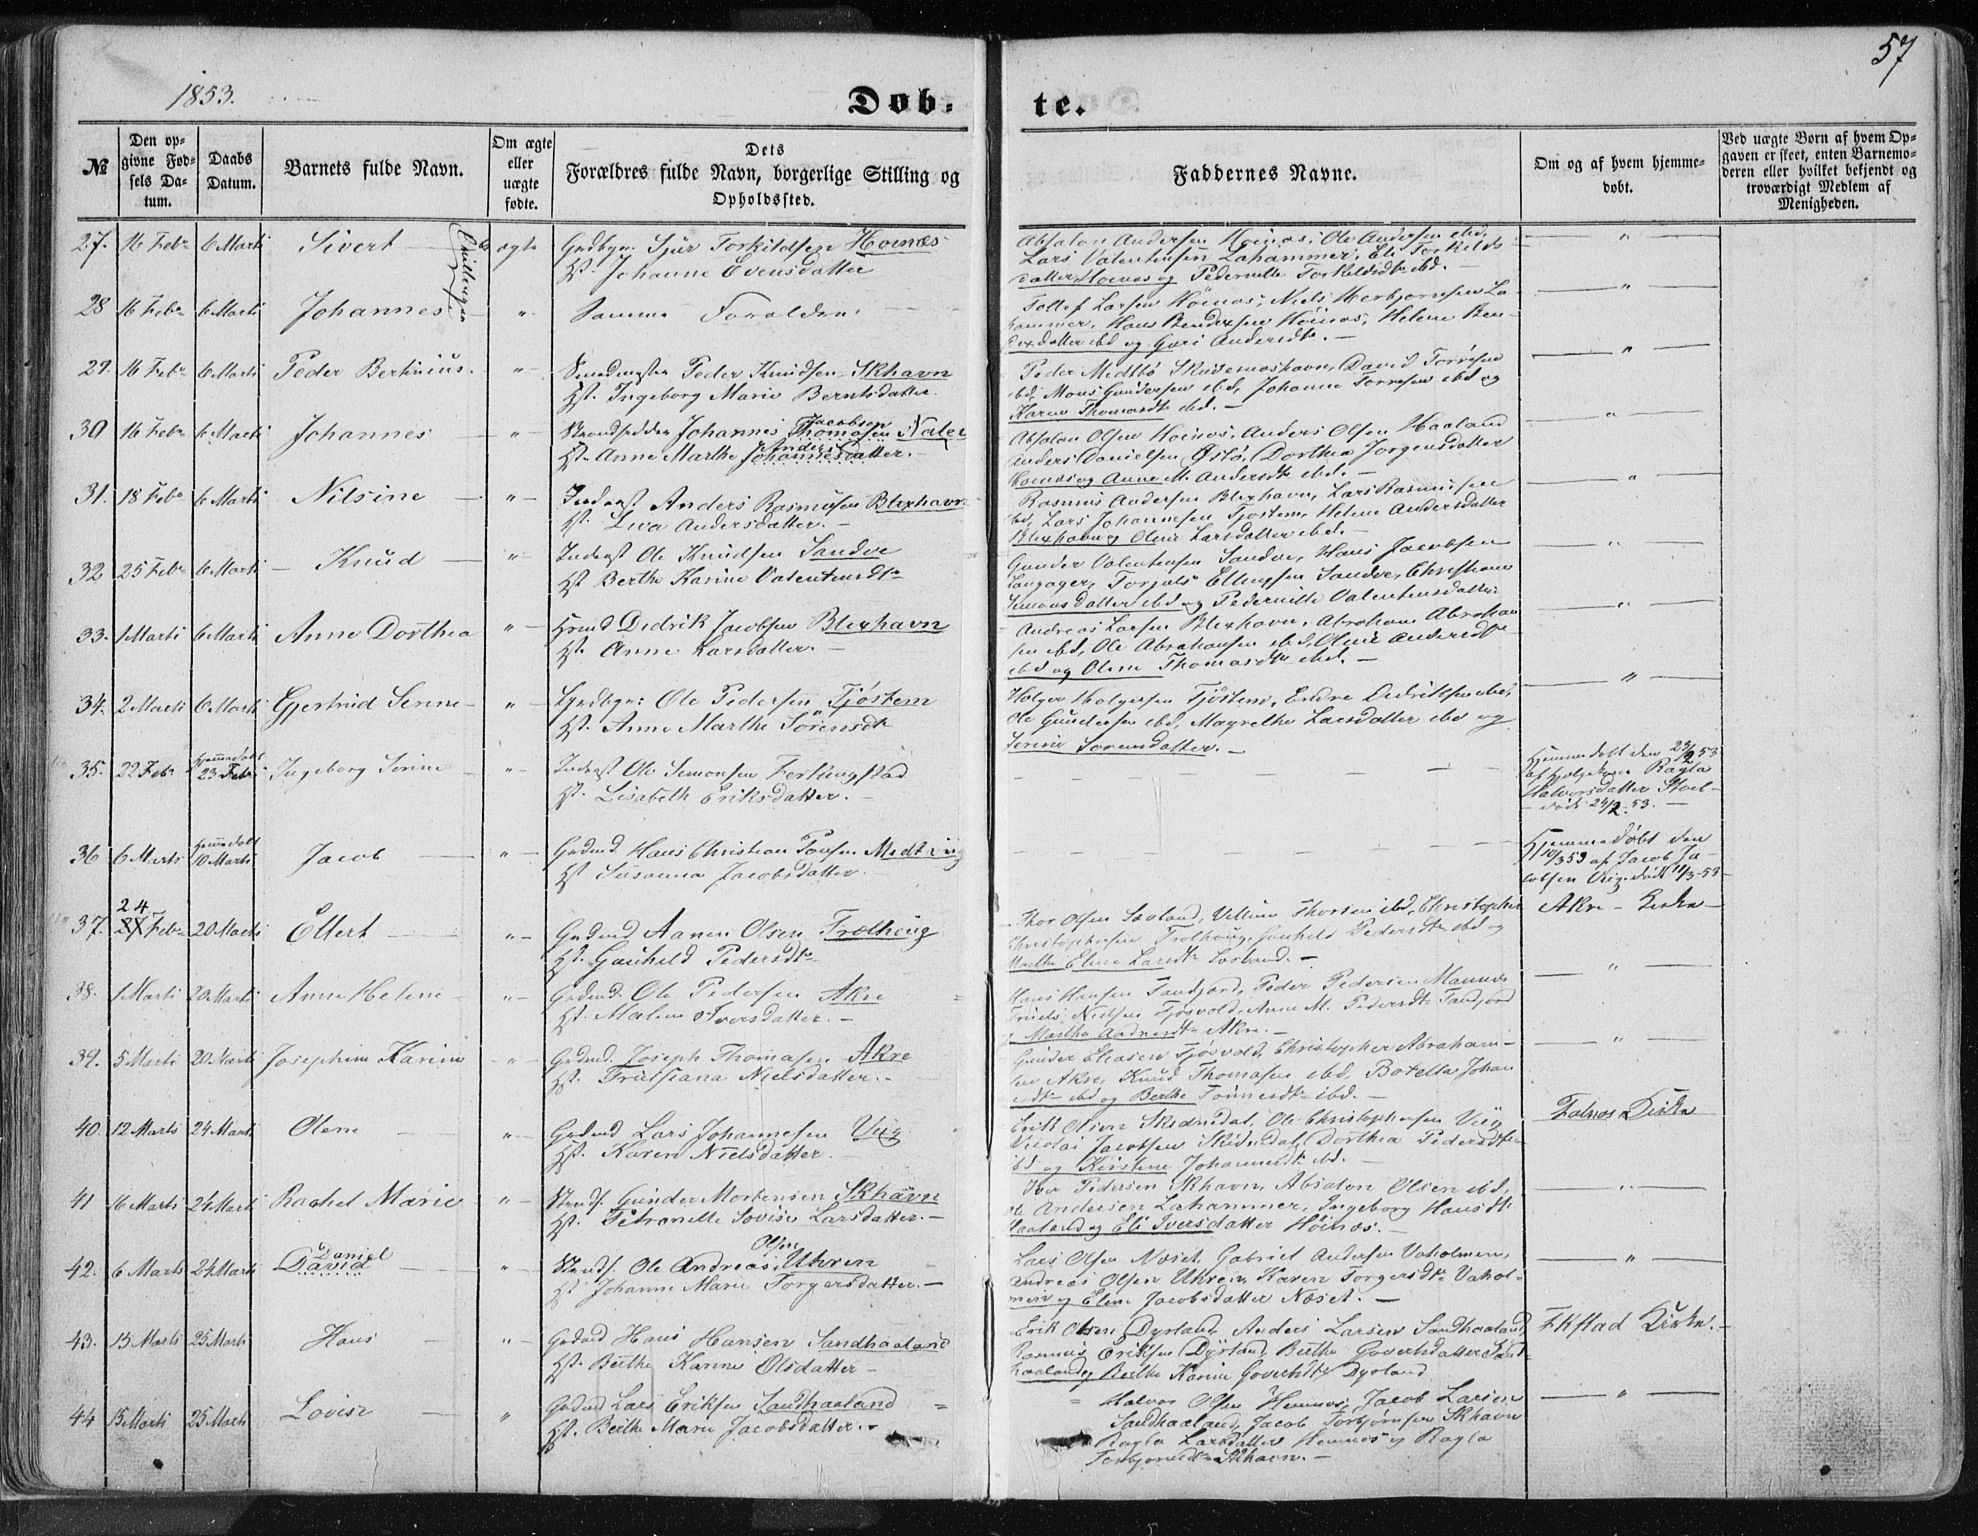 57
1853.
Døb- te.
№
Den opgivne Fødsels Datum.
Daabs Datum.
Barnets fulde Navn.
Om ægte eller uægte fødte.
Dets Forældres fulde Navn, borgerlige Stilling og Opholdssted.
Faddernes Navne.
Om og af hvem hjemmedøbt.
Ved uægte Børn af hvem Opgaven er skeet, enten Barnemoderen eller hvilket bekjendt og troværdigt Medlem af Menigheden.
27. 16 Febr 6 Marti Sivert ægte Grdbgr. Sjur Torkildsen Hoinæs
Hst. Johanne Evensdatter
Absalon Andersen Hoinæs, Ole Andersen ibd,
Lars Valentinsen Lahammer, Eli Torkilds
datter Hoinæs og Pedernille Torkildsdtr ibd. —
Tvillinger
28 16 Febr 6 Marti Johannes " Samme Forældre
Tollef Larsen Höinæs, Niels Herbjørnsen La
hammer, Hans Bendixsen Höinæs, Helene Ben
dixdatter ibd og Guri Andersdtr. —
29. 16 Febr 6 Marti Peder Bertinius " Peder Knudsen Skhavn
Hst. Ingeborg Marie Berntsdatter
Peder Medbø Skudesneshavn, David Torresen
ibd, Mons Gundersen ibd, Johanne Torresen ibd og
Karen Thomasdtr ibd. —
30 16 Febr 6 Marti Johannes " Strandsidder Johannes Jacobsen Thomasen
Hst. Anne Marthe Anders Johannesdatter. —
Absalon Olsen Hoinæs, Anders Olsen Haaland
Anders Danielsen Østø, Dorthea Jorgensdatter
Hoinæs og Anne M. Andersdtr ibd. —
31. 18 Febr 6 Marti Nilsine " Inderst Anders Rasmusen Blexhavn
Hst. Liva Andersdatter. —
Rasmus Andersen Blexhavn, Lars Rasmusen
ibd, Lars Johannesen Tjostem, Helene Andersdatter
Blexhavn og Oline Larsdatter ibd. —
32 25 Febr 6 Marti Knud " Inderst Ole Knudsen Sandve
Hst Berthe Karine Valentinsdtr
Gunder Valentinsen Sandve, Hans Jacobsen
Langager, Torjuls Ellingsen Sandve, Christiane
Simonsdatter ibd og Pedernille Valentinsdatter
33. 1 Marti 6 Marti Anne Dorthea " Hmd Didrik Jacobsen Blexhavn
Hst. Anne Larsdatter. —
Andreas Larsen Blexhavn, Abraham Abraham
sen ibd, Ole Abrahamsen ibd, Oline Andersdtr
ibd og Oline Thomasdtr ibd. —
34. 2 Marti 6 Marti Gjertrud Serine " Grdbgr: Ole Pedersen Tjöstem
Hst. Anne Marthe Sörensdtr
Holger Holgersen Tjöstem, Endre Didriksen ibd,
Ole Gundersen ibd, Magrethe Larsdatter ibd og
Serine Sorensdatter. —
35. 22 Febr Hjemmedöbt 23 Febr Ingeborg Serine " Inderst Ole Simonsen Ferkingstad
Hst. Lisabeth Eriksdatter. —
Hjemmedöbt den 23/2 53
af Ragla
Halvorsdatter Stol
död 24/2. 53. —
36 6 Marts Hjemmedöbt 10 Marti Jacob " Grdmd. Hans Christian
Hst Susanna Jacobsdatter
Hjemmedöbt den
10/3 53 af Jacob Ja
cobsen Viig död 11/3-53
37. 24 27 Febr 20 Marti Ellert " Grdmd Aanen Olsen Trolhoug
Hst. Gunhild Pedersdtr
Thor Olsen Sæland, Villum Thorsen ibd, Christopher
Christophersen Trolhoug, Gunhild Pedersdtr ibd og
Marthe Eline Larsdtr Sæland. —
Akre Kirke
38. 1 Marti 20 Marti Anne Helene " Grdmd. Ole Pedersen Akre
Hst. Malene Iversdatter. —
Hans Hansen Tandjord, Peder Pedersen Mannes
Truels Nielsen Tjosvold, Anne M. Pedersdtr Tandjord
og Martha Aadnesdtr Akre. —
39. 5 Marti 20 Marti Josephine Karine " Grdmd. Joseph Thomasen Akre
Hst. Nielsdatter. —
Gunder Eliasen Tjösvold, Christopher Abraham
sen Akre, Knud Thomasen ibd, Botella Johan
sdtr ibd og Berthe Tönnesdtr ibd.
40. 12 Marts 24 Marti Olene " Grdmd Lars Johannesen Viig
Hst. Karen Nielsdatter. —
Erik Olsen Skidnedal, Ole Christophersen Viig
Nicolai Jacobsen Skidnedal, Dorthea Pedersdtr
ibd og Kirstene Johannesdtr ibd.
Falnæs Kirke
41 16 Marti 24 Marti Rachel Marie " Strands. Gunder Mortensen Skhavn
Hst. Petronelle Lovise Larsdatter. —
Iver Pedersen Skhavn, Absalon Olsen ibd,
Andersen Lahammer, Ingeborg Hansdtr
Haaland og Eli Iversdatter Höinæs. —
42. 6 Marts 24 Marti Daniel David " Strands. Ole Andreas Olsen Uhren
Hst Johanne Marie Torgersdatter. —
Lars Olsen Næset, Gabriel Andersen Vaholmen,
Andreas Olsen Uhren, Karen Torgersdtr Vahol
men og Eline Jacobsdatter Næset. —
43. 15 Marti 25 Marti Hans " Grdmd Hans Hansen Sandhaaland
Hst. Berthe Karine Olsdatter —
Erik Olsen Dyrland, Anders Larsen Sandhaaland
Rasmus Eriksen Dyrland, Berthe Govertsdatter Sand
haaland og Berthe Karine Govertsdtr Dyrland
Fkstad Kirke. —
44 15 Marti 25 Marti Lovise " Grdmd Lars Eriksen Sandhaaland
Hst. Berthe Marie Jacobsdatter. —
Halvor Olsen Hemnæs, Jacob Larsen
Sandhaaland, Jacob Torbjørnsen Skhavn
Ragla Larsdatter Hemnæs og Ragla
Torbjørnsdtr Skhavn. —